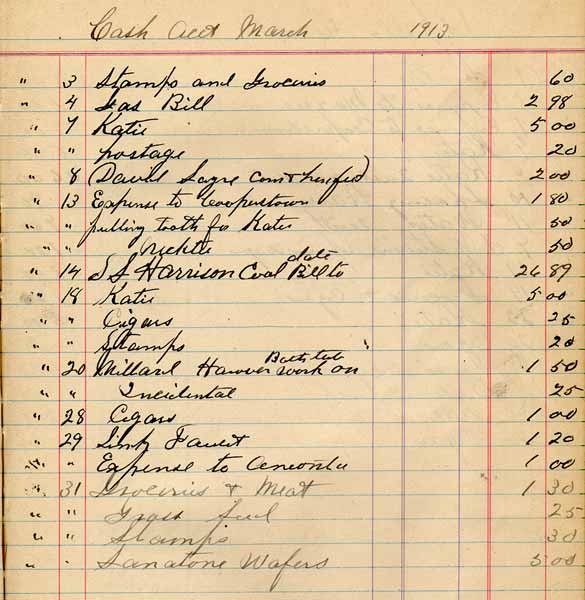 Cash Acct March 1913
" 3 Stamps and Groceries 60
" 4 Gas Bill 2 98
" 7 Katie 5 00
" " postage 20
" 8 David Sayre Corn & 2 00
" 13 Expense to Cooperstown 1 80
" " pulling tooth for Katie 50
" " 50
" 14 Harrison Coal Bill to date 26 89
" 18 Katie 5 00
" " Cigars 25
" " Stamps 20
" 20 Millard Hawver work on Bath tub 1 50
" " Incidental 25
" 28 Cigars 1 00
" 29 Sink Faucet 1 20
" " Expense to Oneonta 1 00
" 31 Groceries & Meat 1 30
" " Grass Seed 25
" " Stamps 30
" " Sanatone Wafers 5 00